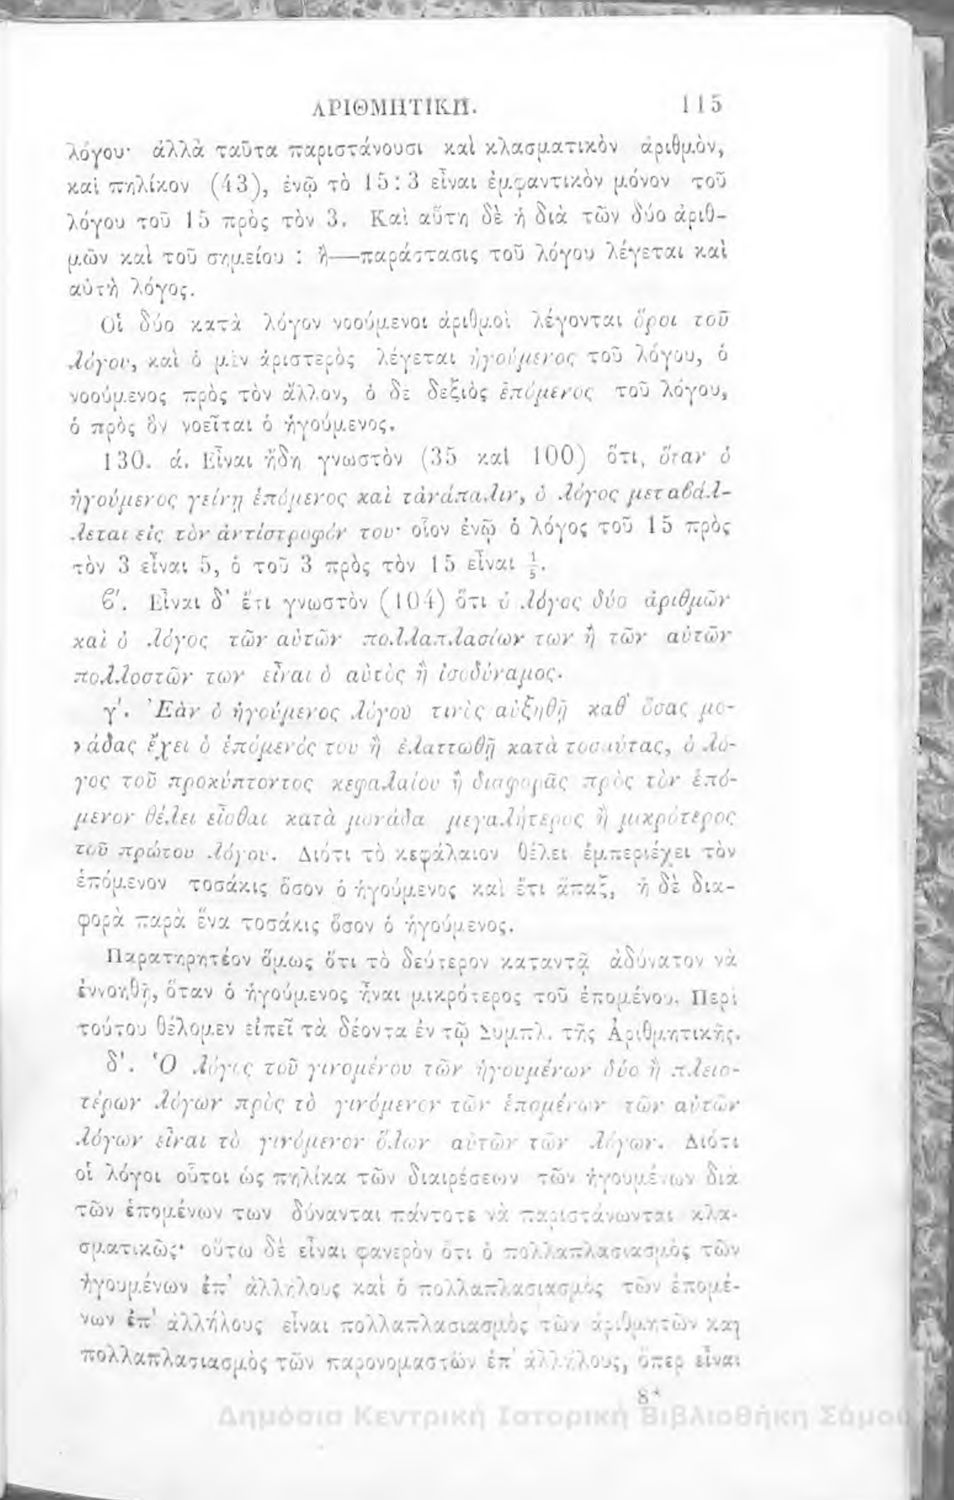 ΑΡΙΘΜΗΤΙΚΗ. 115
λόγου· ἀλλὰ ταῦτα παριστάνουσι καὶ κλασματικὸν ἀριθμὸν,
καὶ πηλίκον (43), ἐνῷ τὸ 15:3 εἶναι ἐμφαντικὸν μόνον τοῦ
λόγου τοῦ 15 πρὸς τὸν 3. Καὶ αὕτη δὲ ἡ διὰ τῶν δύο ἀριθ-
μῶν καὶ τοῦ σημείου : ἢ—παράστασις τοῦ λόγου λέγεται καὶ
αὐτὴ λόγος.
Οἱ δύο κατὰ λόγον νοούμενοι ἀριθμοὶ λέγονται ὅροι τοῦ
λόγου, καὶ ὁ μὲν ἀριστερὸς λέγεται ἡγούμενος τοῦ λόγου, ὁ
νοούμενος πρὸς τὸν ἄλλον, ὁ δὲ δεξιὸς ἑπόμενος τοῦ λόγου,
ὁ πρὸς ὃν νοεῖται ὁ ἡγούμενος.
130. ά. Εἶναι ἤδη γνωστὸν (35 καὶ 100) ὅτι, ὅταν ὁ
ἡγούμενος γείνῃ ἑπόμενος καὶ τἀνάπαλιν, ὁ λόγος μεταβάλ-
λεται εἰς τὸν ἀντίστροφόν του· οἷον ἐνῷ ὁ λόγος τοῦ 15 πρὸς
τὸν 3 εἶναι 5, ὁ τοῦ 3 πρὸς τὸν 15 εἶναι ⅕.
ϐ'. Εἶναι δ' ἔτι γνωστὸν (104) ὅτι ὁ λόγος δύο ἀριθμῶν
καὶ ὁ λόγος τῶν αὐτῶν πολλαπλασίων των ἢ τῶν αὐτῶν
πολλοστῶν των εἶναι ὁ αὐτὸς ἢ ἰσοδύναμος.
γ'. Ἐὰν ὁ ἡγούμενος λόγου τινὸς αὐξηθῇ καθ' ὅσας μο-
νάδας ἔχει ὁ ἑπόμενός του ἢ ἐλαττωθῇ κατὰ τοσαύτας, ὁ λό-
γος τοῦ προκύπτοντος κεφαλαίου ἢ διαφορᾶς πρὸς τὸν ἑπό-
μενον θέλει εἶσθαι κατὰ μονάδα μεγαλήτερος ἢ μικρότερος
τοῦ πρώτου λόγου. Διότι τὸ κεφάλαιον θέλει ἐμπεριέχει τὸν
ἑπόμενον τοσάκις ὅσον ὁ ἡγούμενος καὶ ἔτι ἅπαξ, ἡ δὲ δια-
φορὰ παρὰ ἕνα τοσάκις ὅσον ὁ ἡγούμενος.
Παρατηρητέον ὅμως ὅτι τὸ δεύτερον καταντᾷ ἀδύνατον νὰ
ἐννοηθῇ, ὅταν ὁ ἡγούμενος ἦναι μικρότερος τοῦ ἑπομένου. Περὶ
τούτου θέλομεν εἰπεῖ τὰ δέοντα ἐν τῷ Συμπλ. τῆς Ἀριθμητικῆς.
δ'. Ὁ λόγος τοῦ γινομένου τῶν ἡγουμένων δύο ἢ πλειο-
τέρων λόγων πρὸς τὸ γινόμενον τῶν ἑπομένων τῶν αὐτῶν
λόγων εἶναι τὸ γινόμενον ὅλων αὐτῶν τῶν λόγων. Διότι
οἱ λόγοι οὗτοι ὡς πηλίκα τῶν διαιρέσεων τῶν ἡγουμένων διὰ
τῶν ἑπομένων των δύνανται πάντοτε νὰ παριστάνωνται κλα-
σματικῶς· οὕτω δὲ εἶναι φανερὸν ὅτι ὁ πολλαπλασιασμὸς τῶν
ἡγουμένων ἐπ' ἀλλήλους καὶ ὁ πολλαπλασιασμὸς τῶν ἑπομέ-
νων ἐπ' ἀλλήλους εἶναι πολλαπλασιασμὸς τῶν ἀριθμητῶν καὶ
πολλαπλασιασμὸς τῶν παρονομαστῶν ἐπ' ἀλλήλους, ὅπερ εἶναι
8*
Δημόσια Κεντρική Ιστορική Βιβλιοθήκη Σάμου